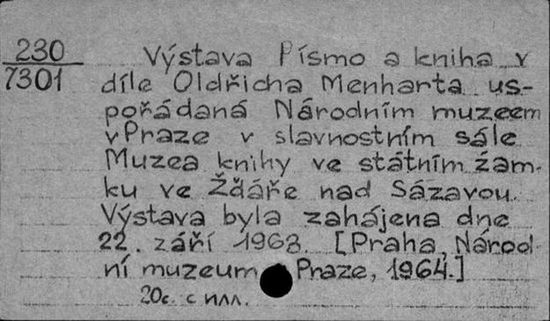 230
7301
Výstava Písmo a kniha v
díle Oldřicha Menharta us-
pořádaná Národním muzeem
v Praze v slavnostním sále
Muzea knihy ve státním zám-
ku ve Žďáře nad Sázavou.
Výstava byla zahájena dne
22. září 1963. [Praha, Národ-
ní muzeum Praze, 1964.]
20с. с илл.